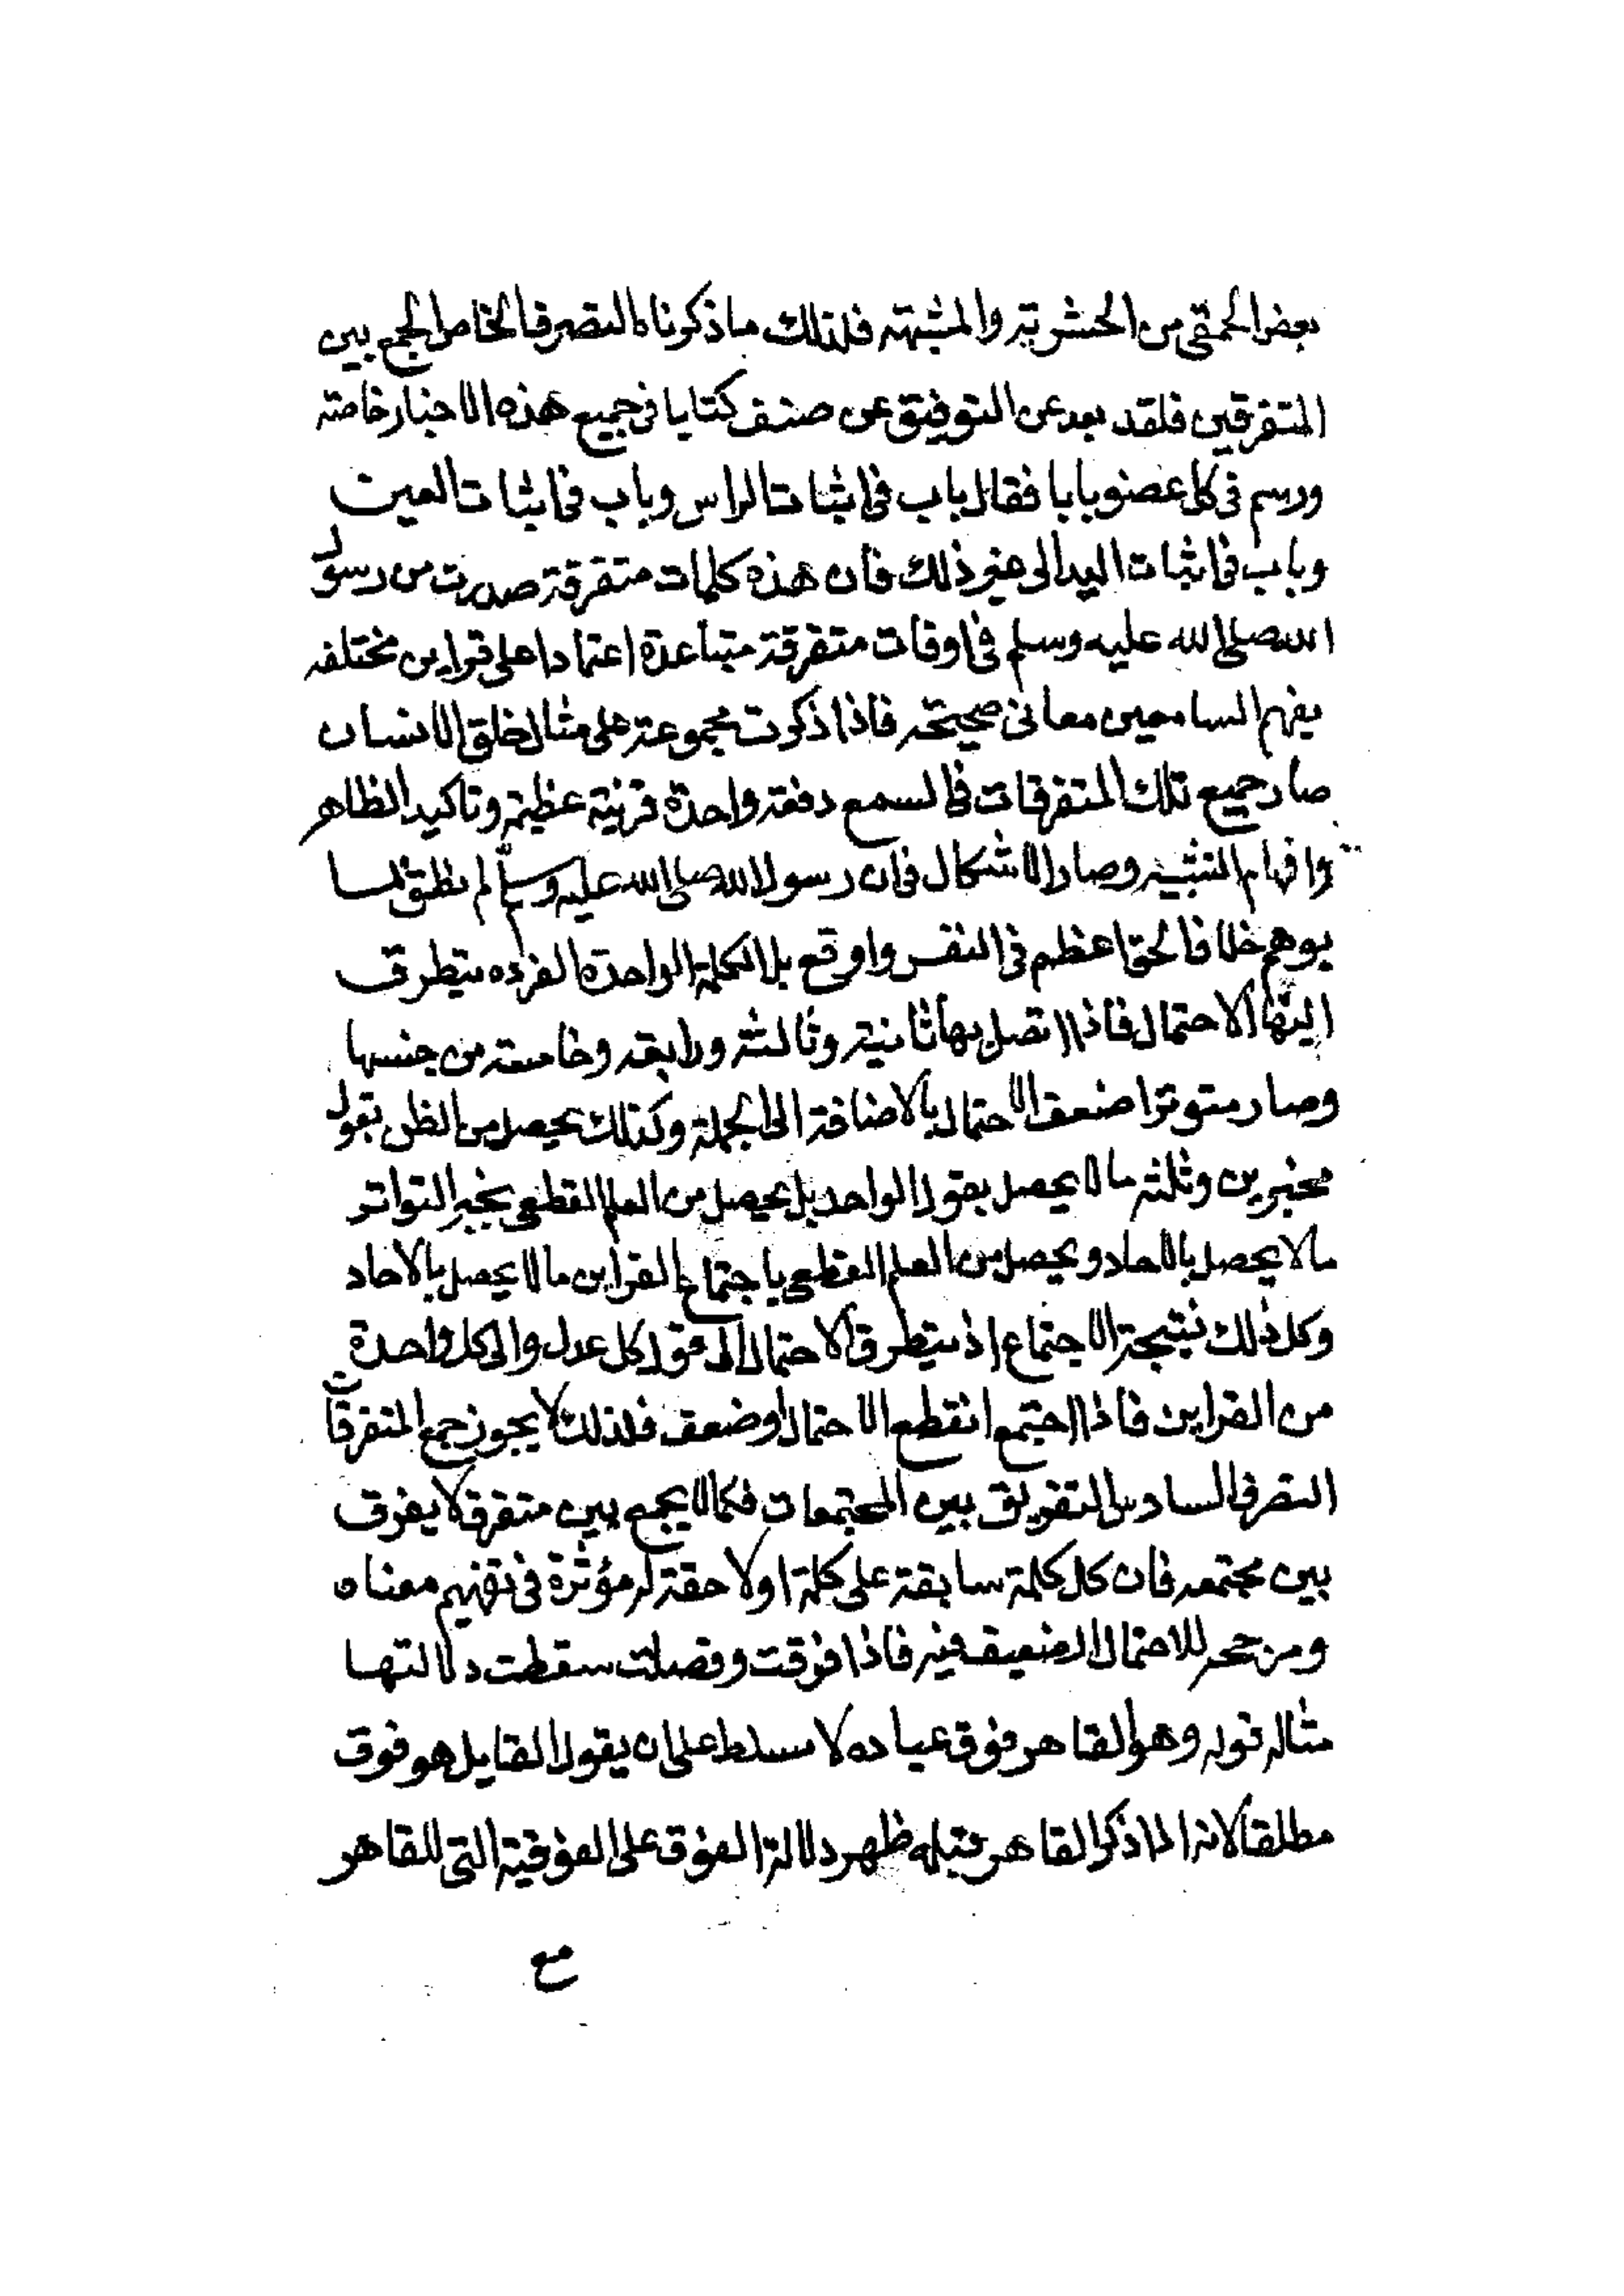 بعض الحمقى من الحشوية والمشبهة فلذلك ما ذكرناه التصرف الخامس الجمع بين
المتفرقين فلقد بعد عن التوفيق عن صنف كتابا في جميع هذه الاخبار خاصة
ورسم في كل عضو بابا فقال باب في اثبات الراس وباب في اثبات العين
وباب في اثبات اليد الى غير ذلك فان هذه كلمات متفرقة صدرت من رسول
الله صلى الله عليه وسلم في اوقات متفرقة متباعدة اعتمادا على قراين مختلفه
يفهم السامعين معاني صحيحة فاذا ذكرت مجموعة على مثال خلق الانسان
صار جميع تلك المتفرقات في السمع دفعة واحدة قرينة عظيمة وتاكيد الظاهر
وافهام التشبيه وصار الاشكال في ان رسول الله صلى الله عليه وسلم لم نطق بما
يوهم خلاف الحق اعظم في النفس واوقع بل الكلمة الواحدة الفرده يتطرق
اليها الاحتمال فاذا اتصل بها ثانية وثالثة ورابعة وخامسة من جنسها
وصار متوترا ضعف الاحتمال بالاضافة الى الجملة وكذلك يحصل من الظن بقول
مخبرين وثلثة ما لا يحصل بقول الواحد بل يحصل من العلم القطعي بخبر التواتر
ما لا يحصل بالاحاد ويحصل من العلم القطعي باجتماع القراين ما لا يحصل بالاحاد
وكل ذلك نتيجة الاجتماع اذ يتطرق الاحتمال الى قول كل عدل والى كل واحدة
من القراين فاذا اجتمع انقطع الاحتمال او ضعف فلذلك لا يجوز جمع المتفرقات
التصرف السادس التفريق بين المجتمعات فكما لا يجمع بين متفرق لا يفرق
بين مجتمعه فان كل كلمة سابقة على كلمة او لاحقة له مؤثرة في تفهيم معناه
ومرجحه للاحتمال الضعيف فيه فاذا فرقت وفصلت سقطت دلالتها
مثاله قوله وهو القاهر فوق عباده لا سلط على ان يقول القايل هو فوق
مطلقا لانه اذا ذكر القاهر قبله ظهر دلالة الفوق على الفوقية التي للقاهر
مع